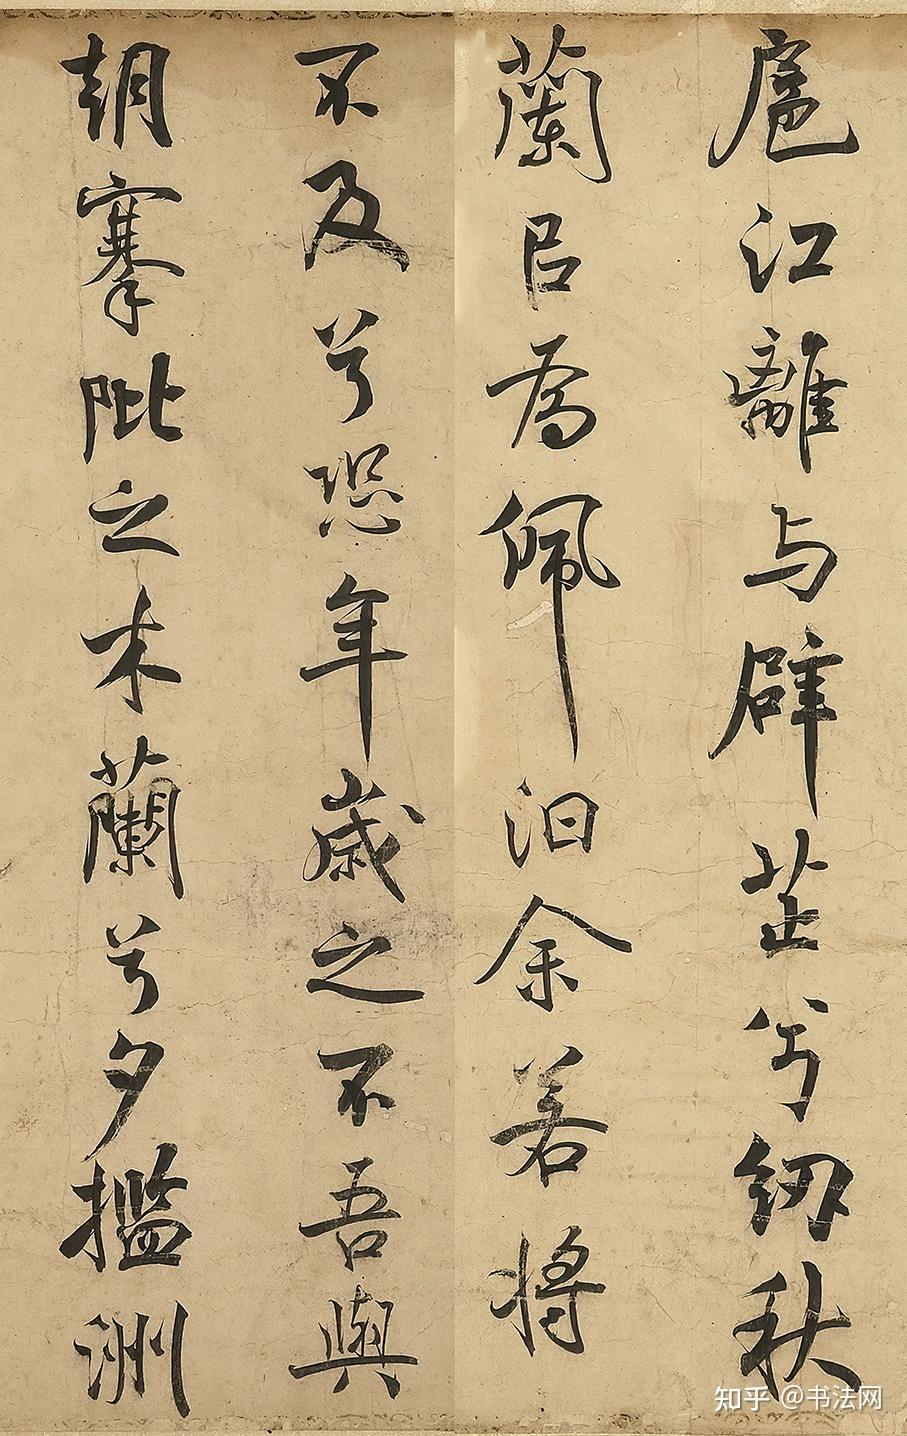 扈江離与辟芷兮紉秋
蘭㠯為佩汩余若將
不及兮恐年歲之不吾與
朝搴阰之木蘭兮夕擥洲
知乎 @书法网